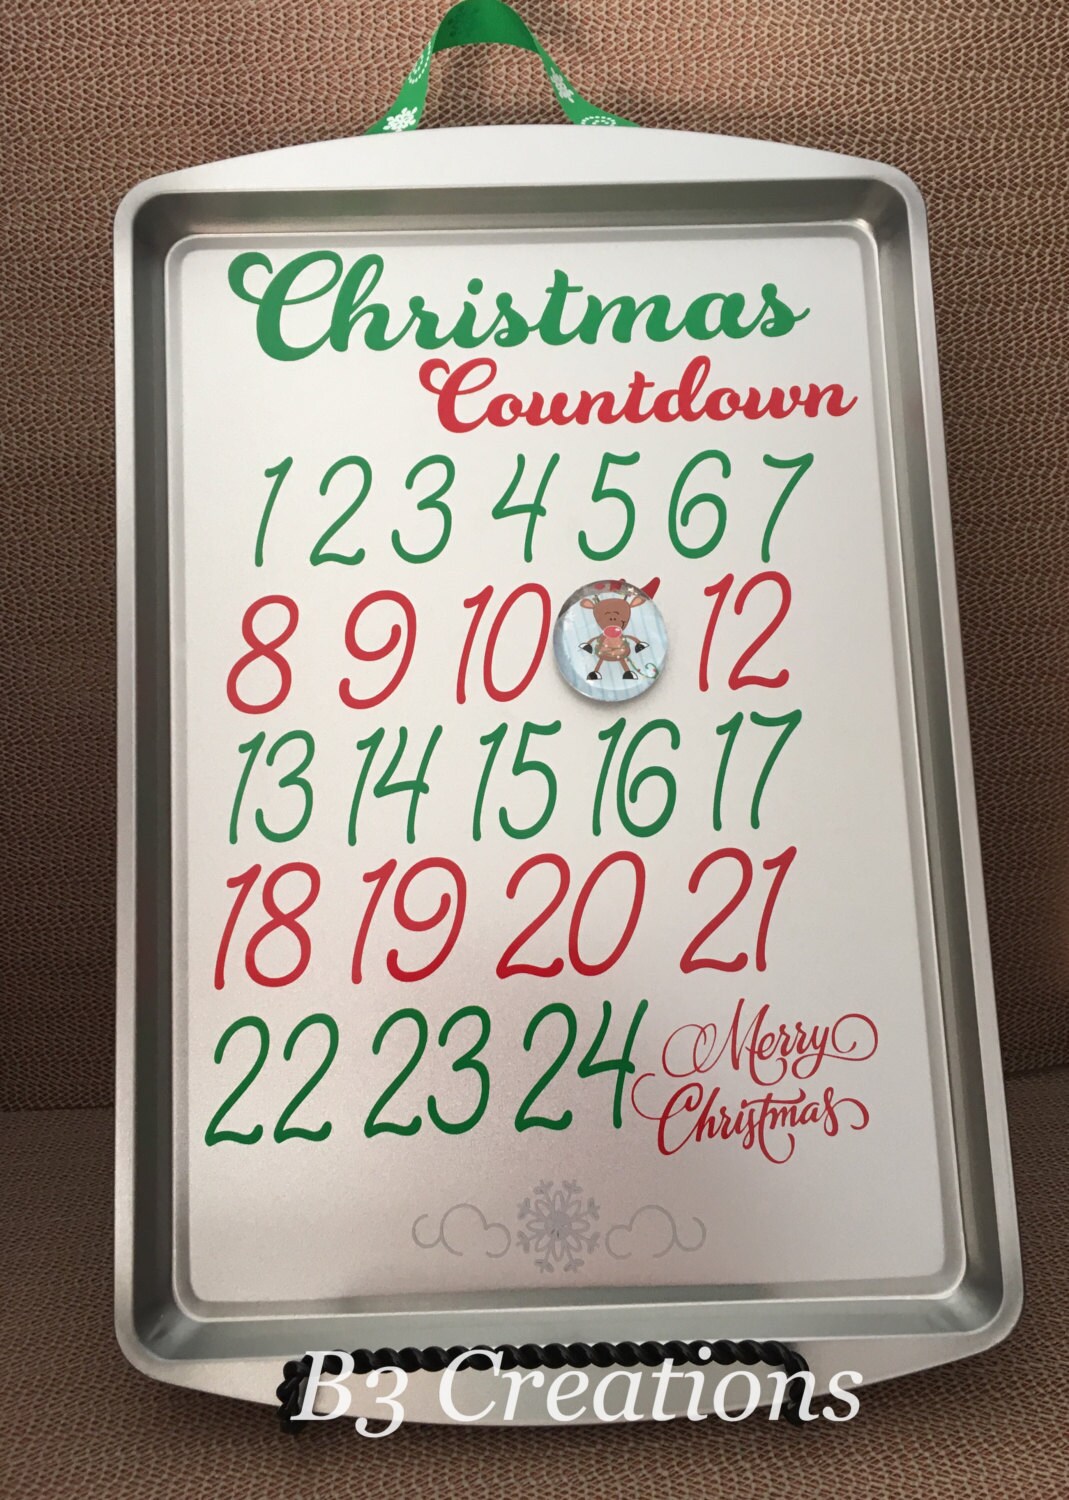 Christmas
Countdown
1 2 3 4 5 6 7
8 9 10 12
13 14 15 16 17
18 19 20 21
22 23 24 Merry
Christmas
B3 Creations